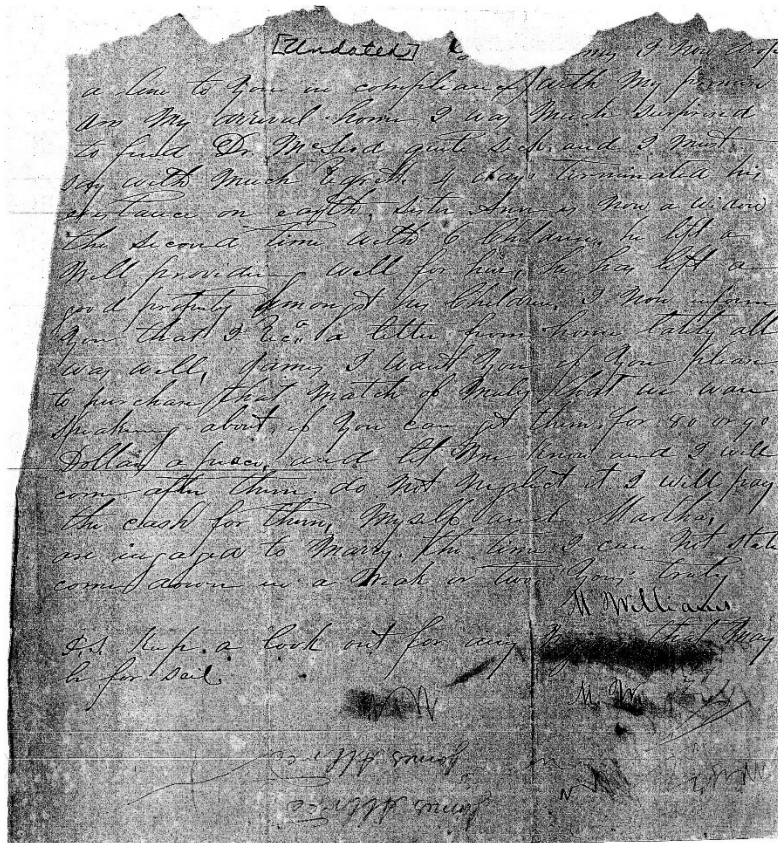 [Undated] I now drop
a line to you in compliance with my promis
on my arrival home I was much surprised
to find Dr. McLeod quit sick and I must
say with much Regrett 4 days terminated his
existance on earth, sister Ann is now a widow
the second time with 6 Children, he left a
Will, providing well for her, he has left a
good property amongst his Children, I now inform
you that I Recd a letter from home lately all
was well, James I want you if you please
to purchase that match of mules that we ware
speaking about if you can get them for 80 or 90
Dollars a piece, and let me know and I will
come after them, do not neglect it I will pay
the cash for them, Myself and Martha,
are ingaged to marry. the time I can not state
come down in a weak or two Yours truly
M Williams
P.S. Keep a look out for any that may
be for sail
M. W
James
James